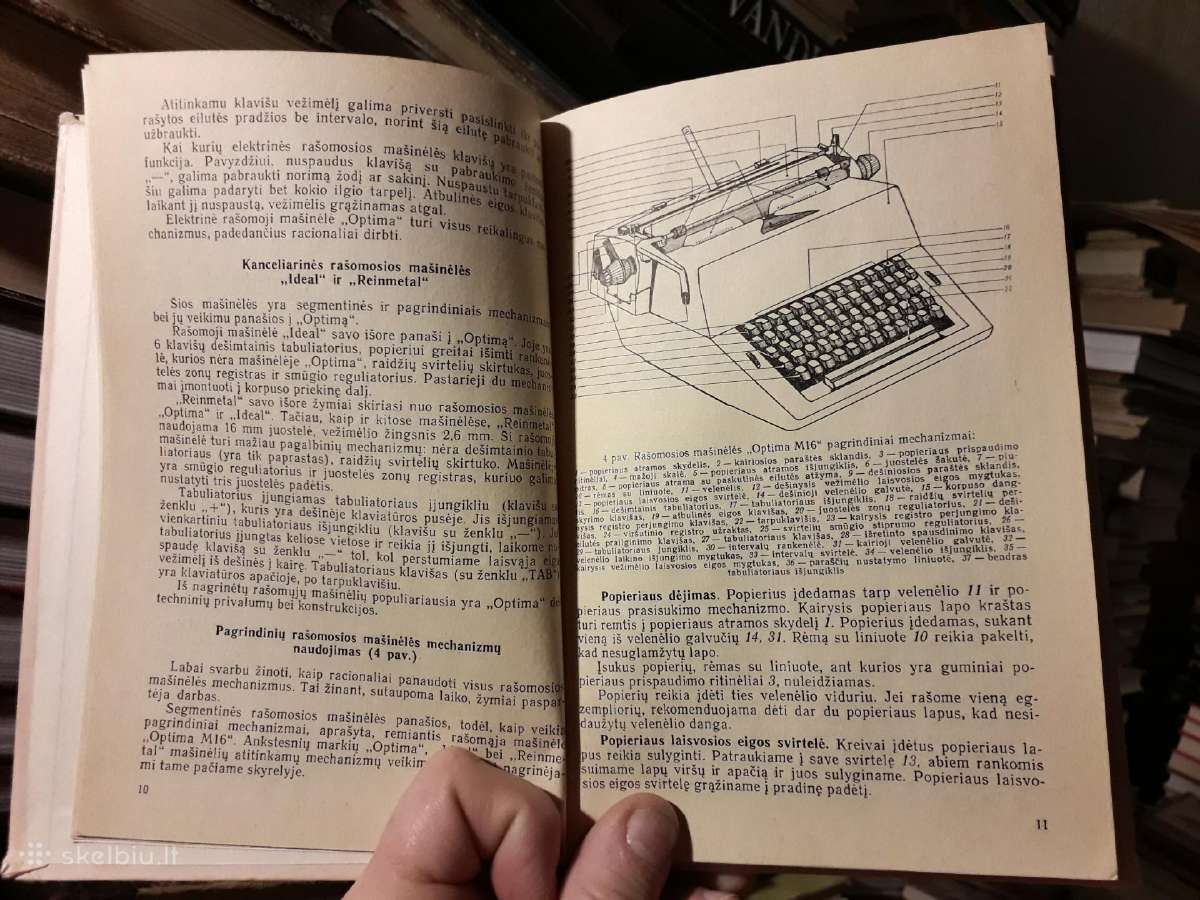 Atitinkamu klavišu vežimėlį galima priversti pasislinkti iki
rašytos eilutės pradžios be intervalo, norint šią eilutę pabraukti
užbraukti.
Kai kurių elektrinės rašomosios mašinėlės klavišų yra
funkcija. Pavyzdžiui, nuspaudus klavišą su pabraukimo
„—“, galima pabraukti norimą žodį ar sakinį. Nuspaustu
šiu galima padaryti bet kokio ilgio tarpelį. Atbulinės eigos
laikant jį nuspaustą, vežimėlis grąžinamas atgal.
Elektrinė rašomoji mašinėlė „Optima“ turi visus reikalingus
chanizmus, padedančius racionaliai dirbti.
Kanceliarinės rašomosios mašinėlės
„Ideal“ ir „Reinmetal“
Šios mašinėlės yra segmentinės ir pagrindiniais mechanizmais
bei jų veikimu panašios į „Optimą“.
Rašomoji mašinėlė „Ideal“ savo išore panaši į „Optimą“. Joje
6 klavišų dešimtainis tabuliatorius, popieriui greitai išimti
lė, kurios nėra mašinėlėje „Optima“, raidžių svirtelių skirtukas,
telės zonų registras ir smūgio reguliatorius. Pastarieji du
mai įmontuoti į korpuso priekinę dalį.
„Reinmetal“ savo išore žymiai skiriasi nuo rašomosios mašinėlės
„Optima“ ir „Ideal“. Tačiau, kaip ir kitose mašinėlėse, „Reinmetal“
naudojama 16 mm juostelė, vežimėlio žingsnis 2,6 mm. Ši
mašinėlė turi mažiau pagalbinių mechanizmų: nėra dešimtainio
liatoriaus (yra tik paprastas), raidžių svirtelių skirtuko.
yra smūgio reguliatorius ir juostelės zonų registras, kuriuo
nustatyti tris juostelės padėtis.
Tabuliatorius įjungiamas tabuliatoriaus įjungikliu (klavišu su
ženklu „+“), kuris yra dešinėje klaviatūros pusėje. Jis išjungiamas
vienkartiniu tabuliatoriaus išjungikliu (klavišu su ženklu „—“).
tabuliatorius įjungtas keliose vietose ir reikia jį išjungti, laikome
spaudę klavišą su ženklu „—“ tol, kol perstumiame laisvąja eiga
vežimėlį iš dešinės į kairę. Tabuliatoriaus klavišas (su ženklu „TAB“)
yra klaviatūros apačioje, po tarpuklavišiu.
Iš nagrinėtų rašomųjų mašinėlių populiariausia yra „Optima“ dėl
techninių privalumų bei konstrukcijos.
Pagrindinių rašomosios mašinėlės mechanizmų
naudojimas (4 pav.)
Labai svarbu žinoti, kaip racionaliai panaudoti visus rašomosios
mašinėlės mechanizmus. Tai žinant, sutaupoma laiko, žymiai
tėja darbas.
Segmentinės rašomosios mašinėlės panašios, todėl, kaip veikia
pagrindiniai mechanizmai, aprašyta, remiantis rašomąja mašinėle
„Optima M16“. Ankstesnių markių „Optima“, bei
tal“ mašinėlių atitinkamų mechanizmų
mi tame pačiame skyrelyje.
10
11
12
13
14
15
16
17
18
19
20
21
22
4 pav. Rašomosios mašinėlės „Optima M16“ pagrindiniai mechanizmai:
1 — popieriaus atramos skydelis, 2 — kairiosios paraštės sklandis, 3 — popieriaus prispaudimo
ritinėliai, 4 — mažoji skalė, 5 — popieriaus atramos išjungiklis, 6 — juostelės šakutė, 7 — pju-
8 — popieriaus atrama su paskutinės eilutės atžyma, 9 — dešiniosios paraštės sklandis,
10 — rėmas su liniuote, 11 — velenėlis, 12 — dešinysis vežimėlio laisvosios eigos mygtukas,
13 — popieriaus laisvosios eigos svirtelė, 14 — dešinioji velenėlio galvutė, 15 — korpuso dang-
16 — dešimtainis tabuliatorius, 17 — tabuliatoriaus išjungiklis, 18 — raidžių svirtelių per-
skyrimo klavišas, 19 — atbulinės eigos klavišas, 20 — juostelės zonų reguliatorius, 21 — deši-
nysis registro perjungimo klavišas, 22 — tarpuklavišis, 23 — kairysis registro perjungimo kla-
višas, 24 — viršutinio registro užraktas, 25 — svirtelių smūgio stiprumo reguliatorius, 26 —
eilutės prailginimo klavišas, 27 — tabuliatoriaus klavišas, 28 — išretinto spausdinimo klavišas,
29 — tabuliatoriaus įungiklis, 30 — intervalų rankenėlė, 31 — kairioji velenėlio galvutė, 32 —
velenėlio laikino išjungimo mygtukas, 33 — intervalų svirtelė, 34 — velenėlio išjungiklis, 35 —
kairysis vežimėlio laisvosios eigos mygtukas, 36 — paraščių nustatymo liniuotė, 37 — bendras
tabuliatoriaus išjungiklis
Popieriaus dėjimas. Popierius įdedamas tarp velenėlio 11 ir po-
pieriaus prasisukimo mechanizmo. Kairysis popieriaus lapo kraštas
turi remtis į popieriaus atramos skydelį 1. Popierius įdedamas, sukant
vieną iš velenėlio galvučių 14, 31. Rėmą su liniuote 10 reikia pakelti,
kad nesuglamžytų lapo.
Įsukus popierių, rėmas su liniuote, ant kurios yra guminiai po-
pieriaus prispaudimo ritinėliai 3, nuleidžiamas.
Popierių reikia įdėti ties velenėlio viduriu. Jei rašome vieną eg-
zempliorių, rekomenduojama dėti dar du popieriaus lapus, kad nesi-
daužytų velenėlio danga.
Popieriaus laisvosios eigos svirtelė. Kreivai įdėtus popieriaus la-
pus reikia sulyginti. Patraukiame į save svirtelę 13, abiem rankomis
suimame lapų viršų ir apačią ir juos sulyginame. Popieriaus laisvo-
sios eigos svirtelę grąžiname į pradinę padėtį.
11
skelbiu.lt